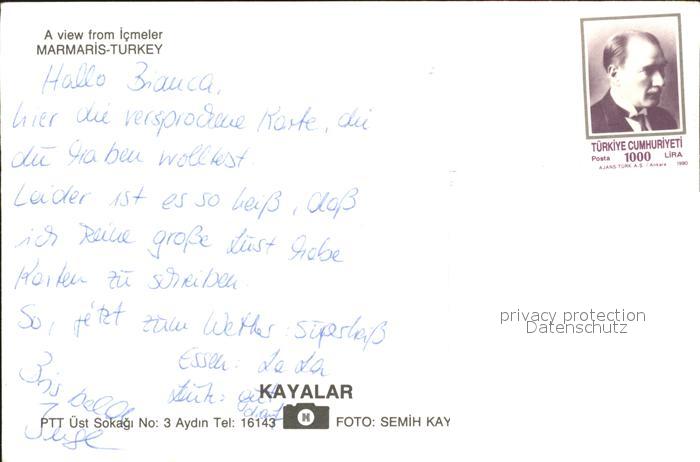 A view from İçmeler
MARMARİS-TURKEY
Hallo Bianca,
hier die versprochene Karte, die
du haben wolltest.
Leider ist es so heiß, daß
ich keine große Lust habe
Karten zu schreiben.
So, jetzt zum Wetter: Superheiß
Essen: La La
Bis
KAYALAR
PTT Üst Sokağı No: 3 Aydın Tel: 16143
FOTO: SEMİH KAY
TÜRKİYE CUMHURİYETİ
Posta 1000 LİRA
AJANS TÜRK A.Ş. / Ankara 1990
privacy protection
Datenschutz